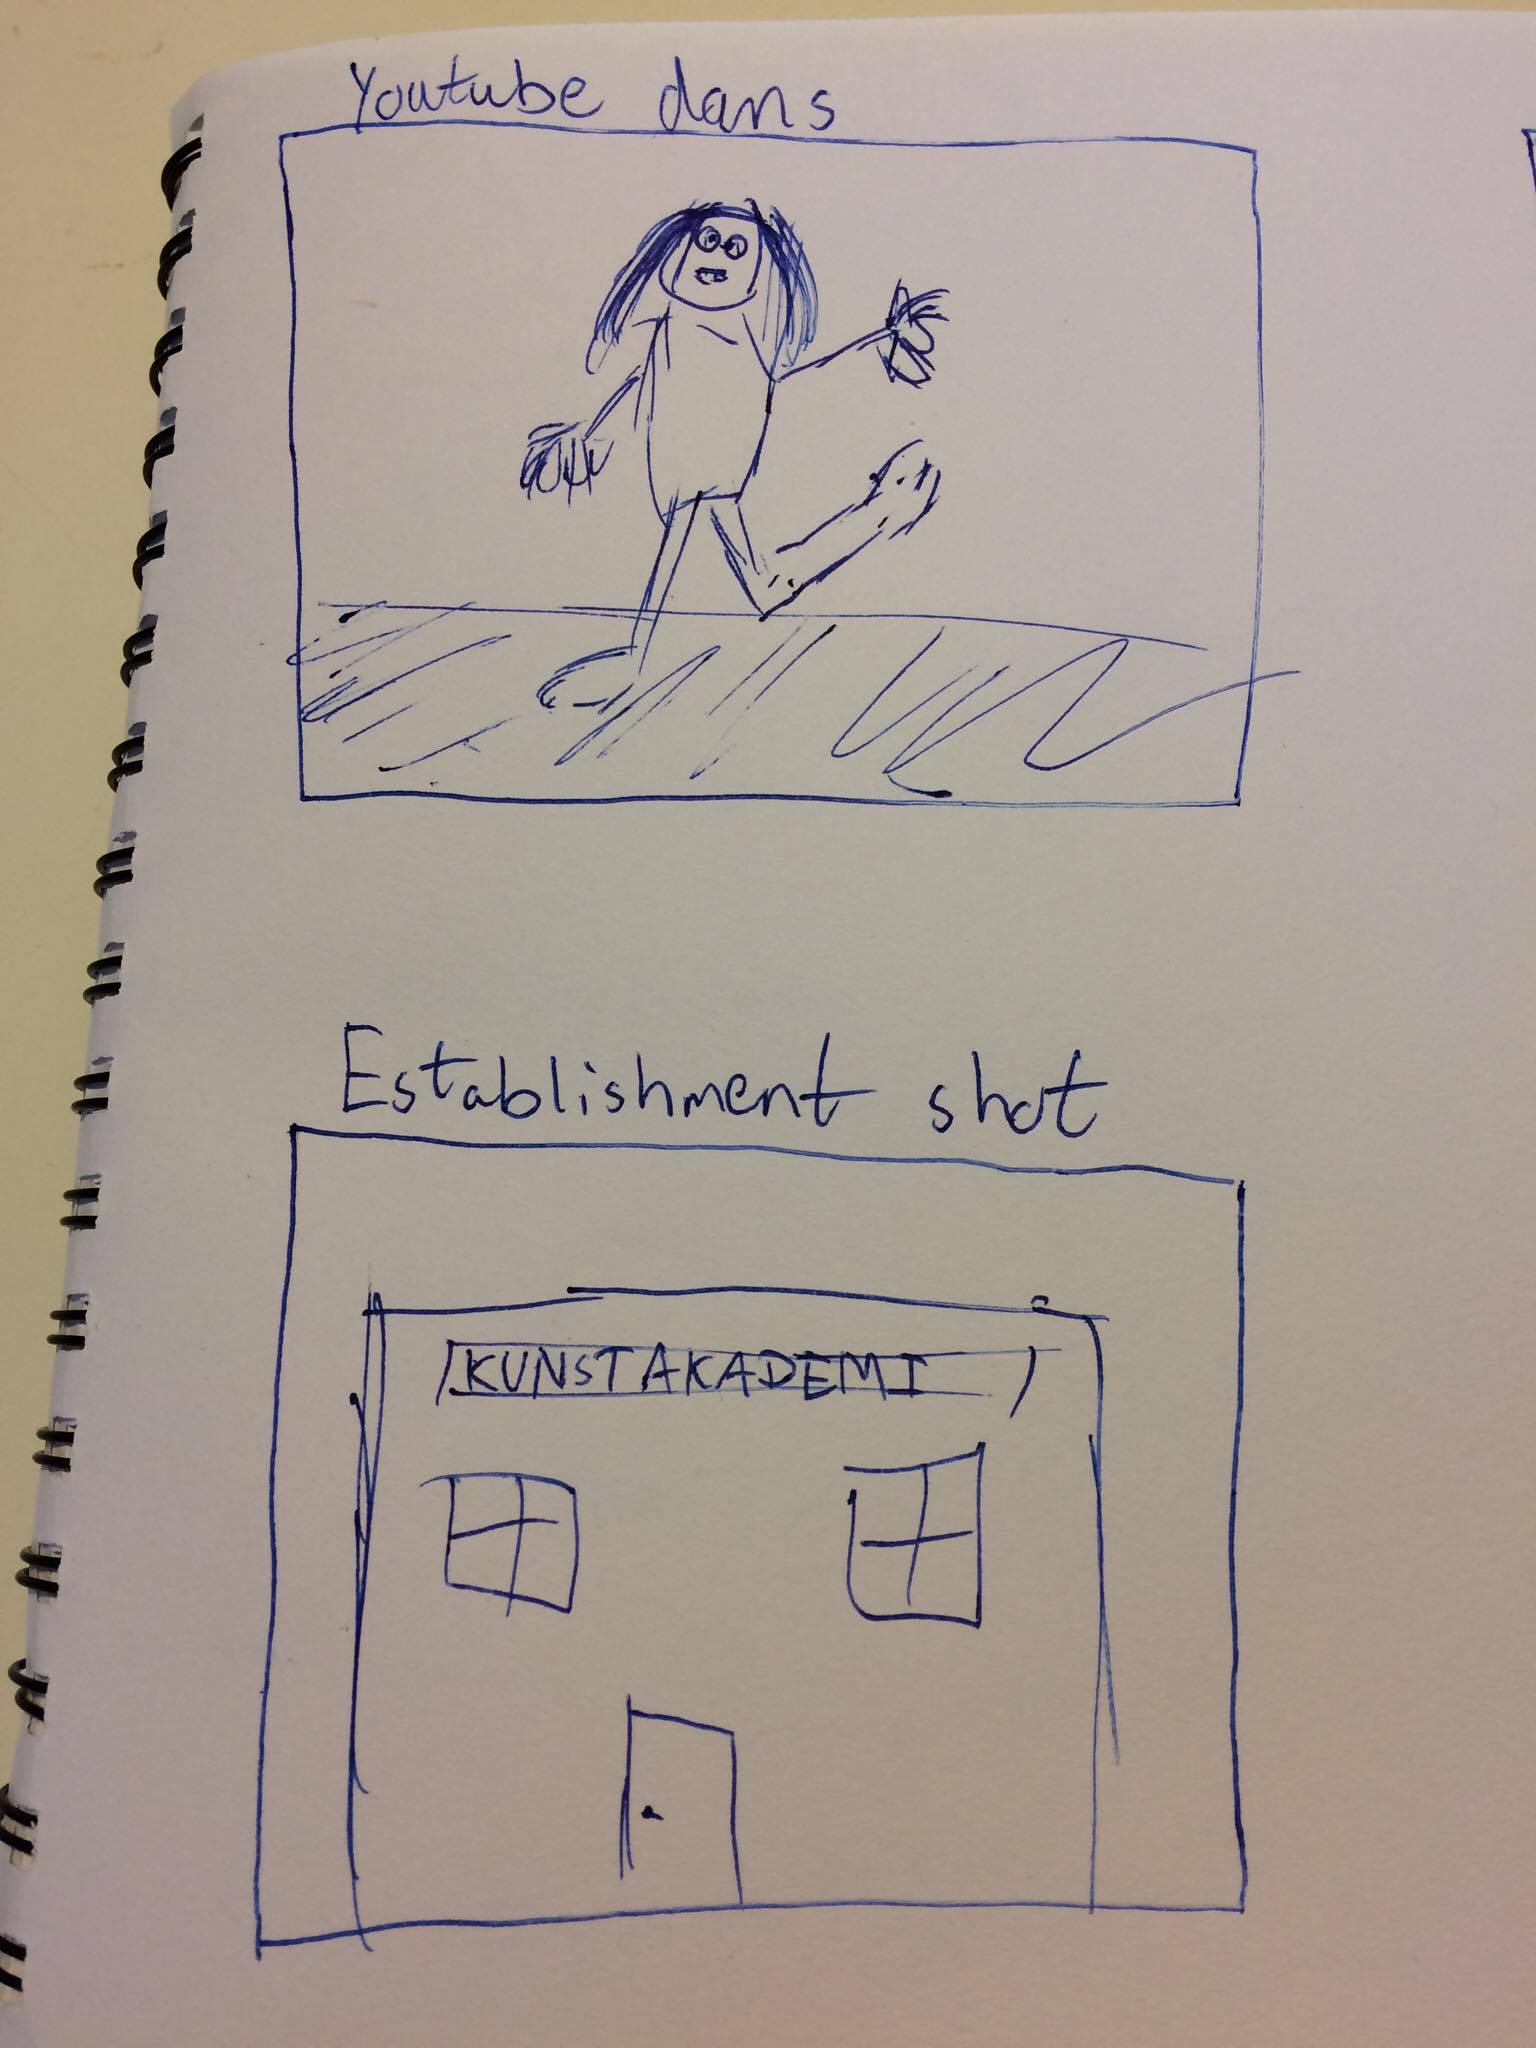 Youtube dans
Establishment shot
KUNSTAKADEMI